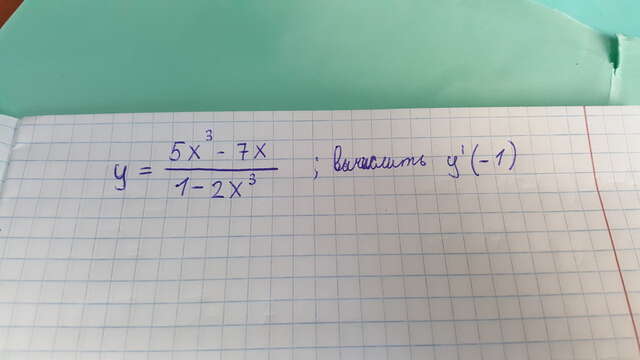 y = (5x³ - 7x)/(1 - 2x³) ; вычислить y'(-1)